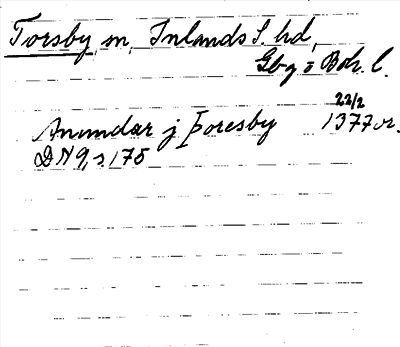 Torsby sn, Inlands S. hd,
Gbg o Boh. l.
22/2
Anundar j Þoresby 1377 or.
DN 9, s. 175